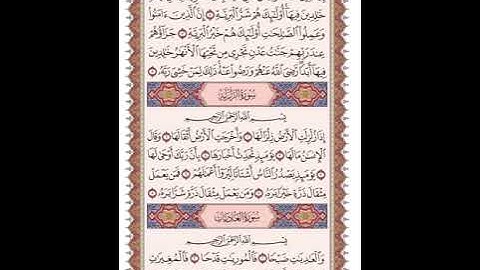 خَٰلِدِينَ فِيهَآ أُو۟لَٰٓئِكَ هُمْ شَرُّ ٱلْبَرِيَّةِ ۝ إِنَّ ٱلَّذِينَ ءَامَنُوا۟
وَعَمِلُوا۟ ٱلصَّٰلِحَٰتِ أُو۟لَٰٓئِكَ هُمْ خَيْرُ ٱلْبَرِيَّةِ ۝ جَزَآؤُهُمْ
عِندَ رَبِّهِمْ جَنَّٰتُ عَدْنٍ تَجْرِى مِن تَحْتِهَا ٱلْأَنْهَٰرُ خَٰلِدِينَ
فِيهَآ أَبَدًا رَّضِىَ ٱللَّهُ عَنْهُمْ وَرَضُوا۟ عَنْهُ ذَٰلِكَ لِمَنْ خَشِىَ رَبَّهُۥ ۝
سُورَةُ الزَّلْزَلَةِ
بِسْمِ ٱللَّهِ ٱلرَّحْمَٰنِ ٱلرَّحِيمِ
إِذَا زُلْزِلَتِ ٱلْأَرْضُ زِلْزَالَهَا ۝ وَأَخْرَجَتِ ٱلْأَرْضُ أَثْقَالَهَا ۝ وَقَالَ
ٱلْإِنسَٰنُ مَا لَهَا ۝ يَوْمَئِذٍ تُحَدِّثُ أَخْبَارَهَا ۝ بِأَنَّ رَبَّكَ أَوْحَىٰ لَهَا
۝ يَوْمَئِذٍ يَصْدُرُ ٱلنَّاسُ أَشْتَاتًا لِّيُرَوْا۟ أَعْمَٰلَهُمْ ۝ فَمَن يَعْمَلْ
مِثْقَالَ ذَرَّةٍ خَيْرًا يَرَهُۥ ۝ وَمَن يَعْمَلْ مِثْقَالَ ذَرَّةٍ شَرًّا يَرَهُۥ ۝
سُورَةُ العَادِيَاتِ
بِسْمِ ٱللَّهِ ٱلرَّحْمَٰنِ ٱلرَّحِيمِ
وَٱلْعَٰدِيَٰتِ ضَبْحًا ۝ فَٱلْمُورِيَٰتِ قَدْحًا ۝ فَٱلْمُغِيرَٰتِ